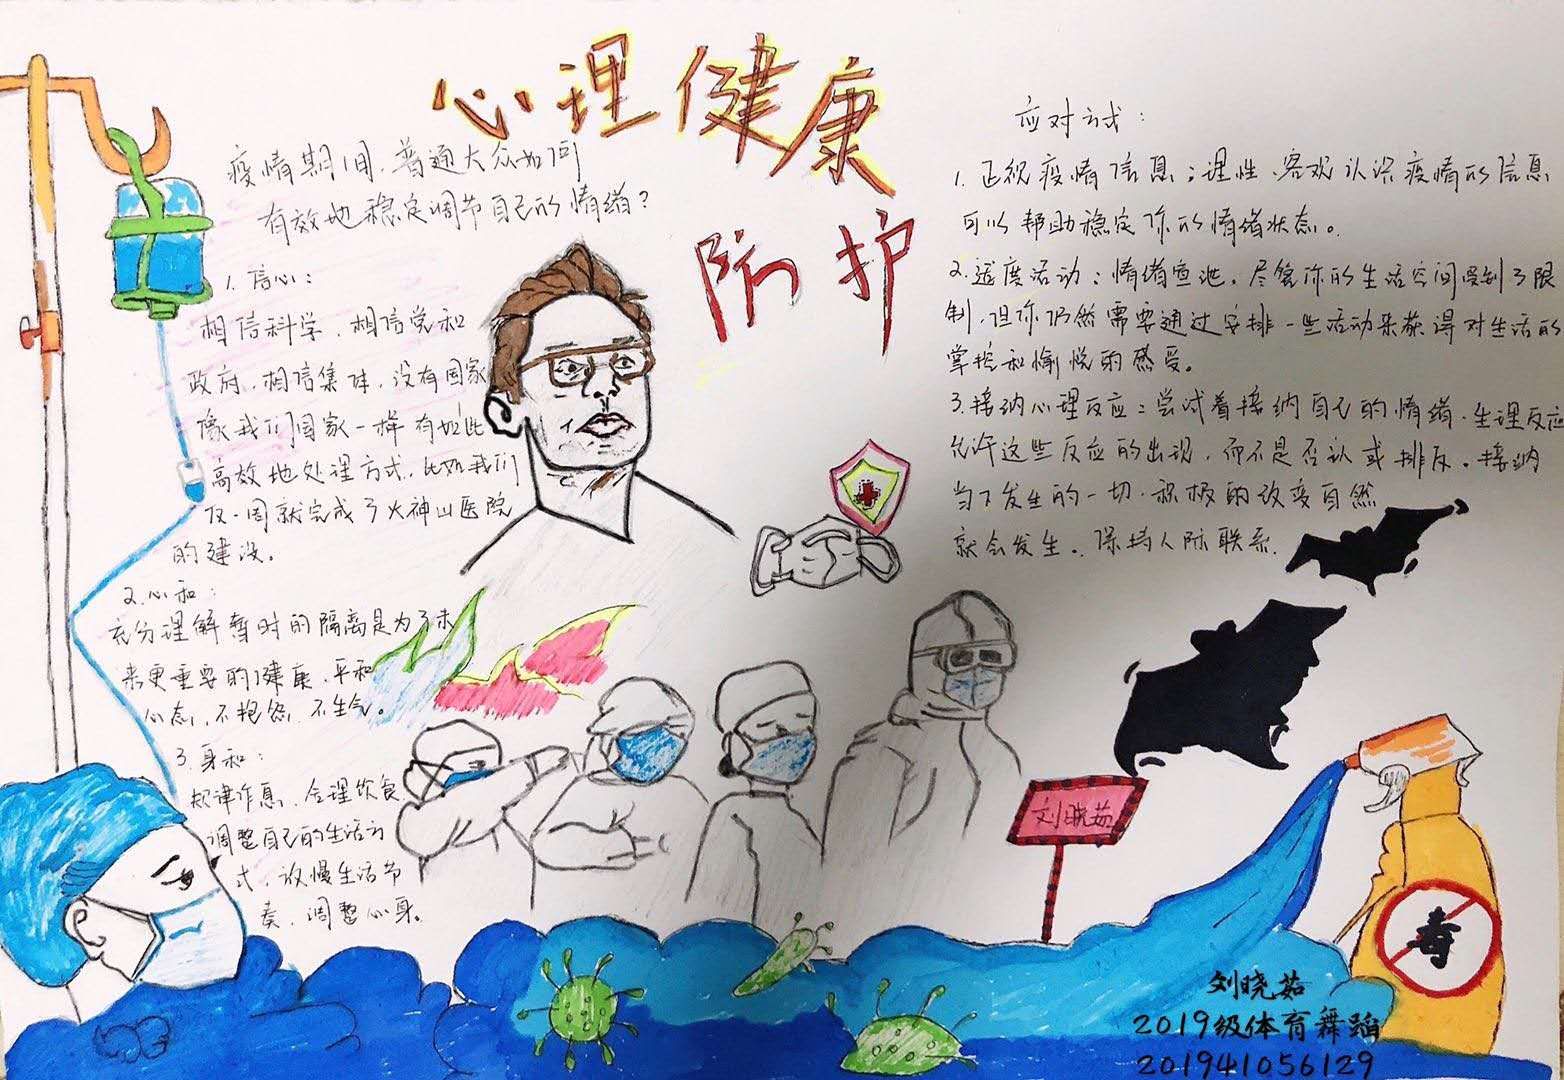 心理健康
防护
疫情期间,普通大众如何
有效地稳定调节自己的情绪?
1.信心:
相信科学、相信党和
政府,相信集体,没有国家
像我们国家一样有如此
高效地处理方式,比如我们
仅一周就完成了火神山医院
的建设。
2.心和:
充分理解暂时的隔离是为了未
来更重要的健康,平和
心态,不抱怨,不生气。
3.身和:
规律作息、合理饮食
调整自己的生活方
式,放慢生活节
奏,调整心身。
应对方式:
1.正视疫情信息;理性、客观认识疫情的信息
可以帮助稳定你的情绪状态。
2.适度活动:情绪宣泄,尽管你的生活空间受到了限
制,但你仍然需要通过安排一些活动来获得对生活的
掌控和愉悦的感受。
3.接纳心理反应:尝试着接纳自己的情绪、生理反应
允许这些反应的出现,而不是否认或排斥。接纳
当下发生的一切,积极的改变自然
就会发生。保持人际联系.
刘晓茹
毒
刘晓茹
2019级体育舞蹈
201941056129